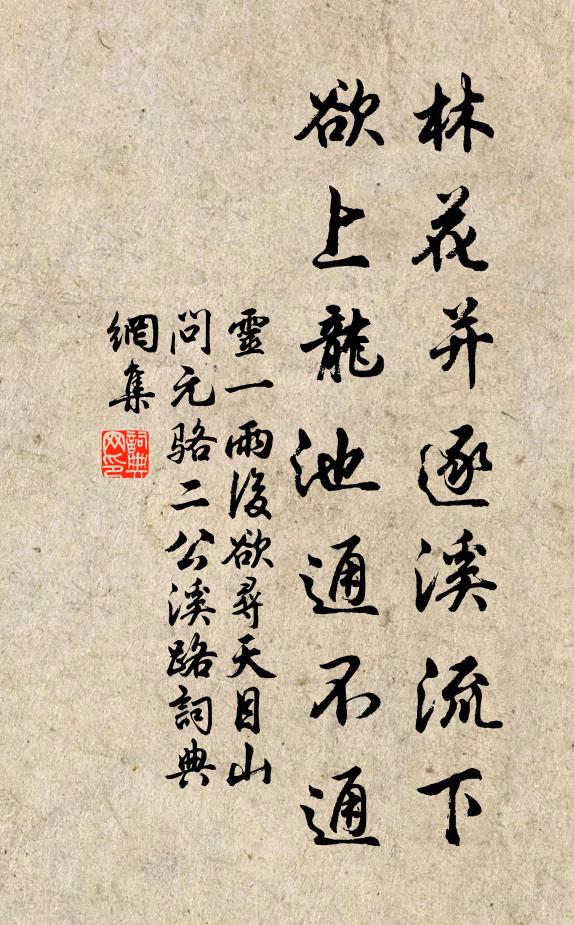 林花并逐溪流下
欲上龍池通不通
靈一雨後欲尋天目山
問元骆二公溪路詞典
網集
詞典
网印